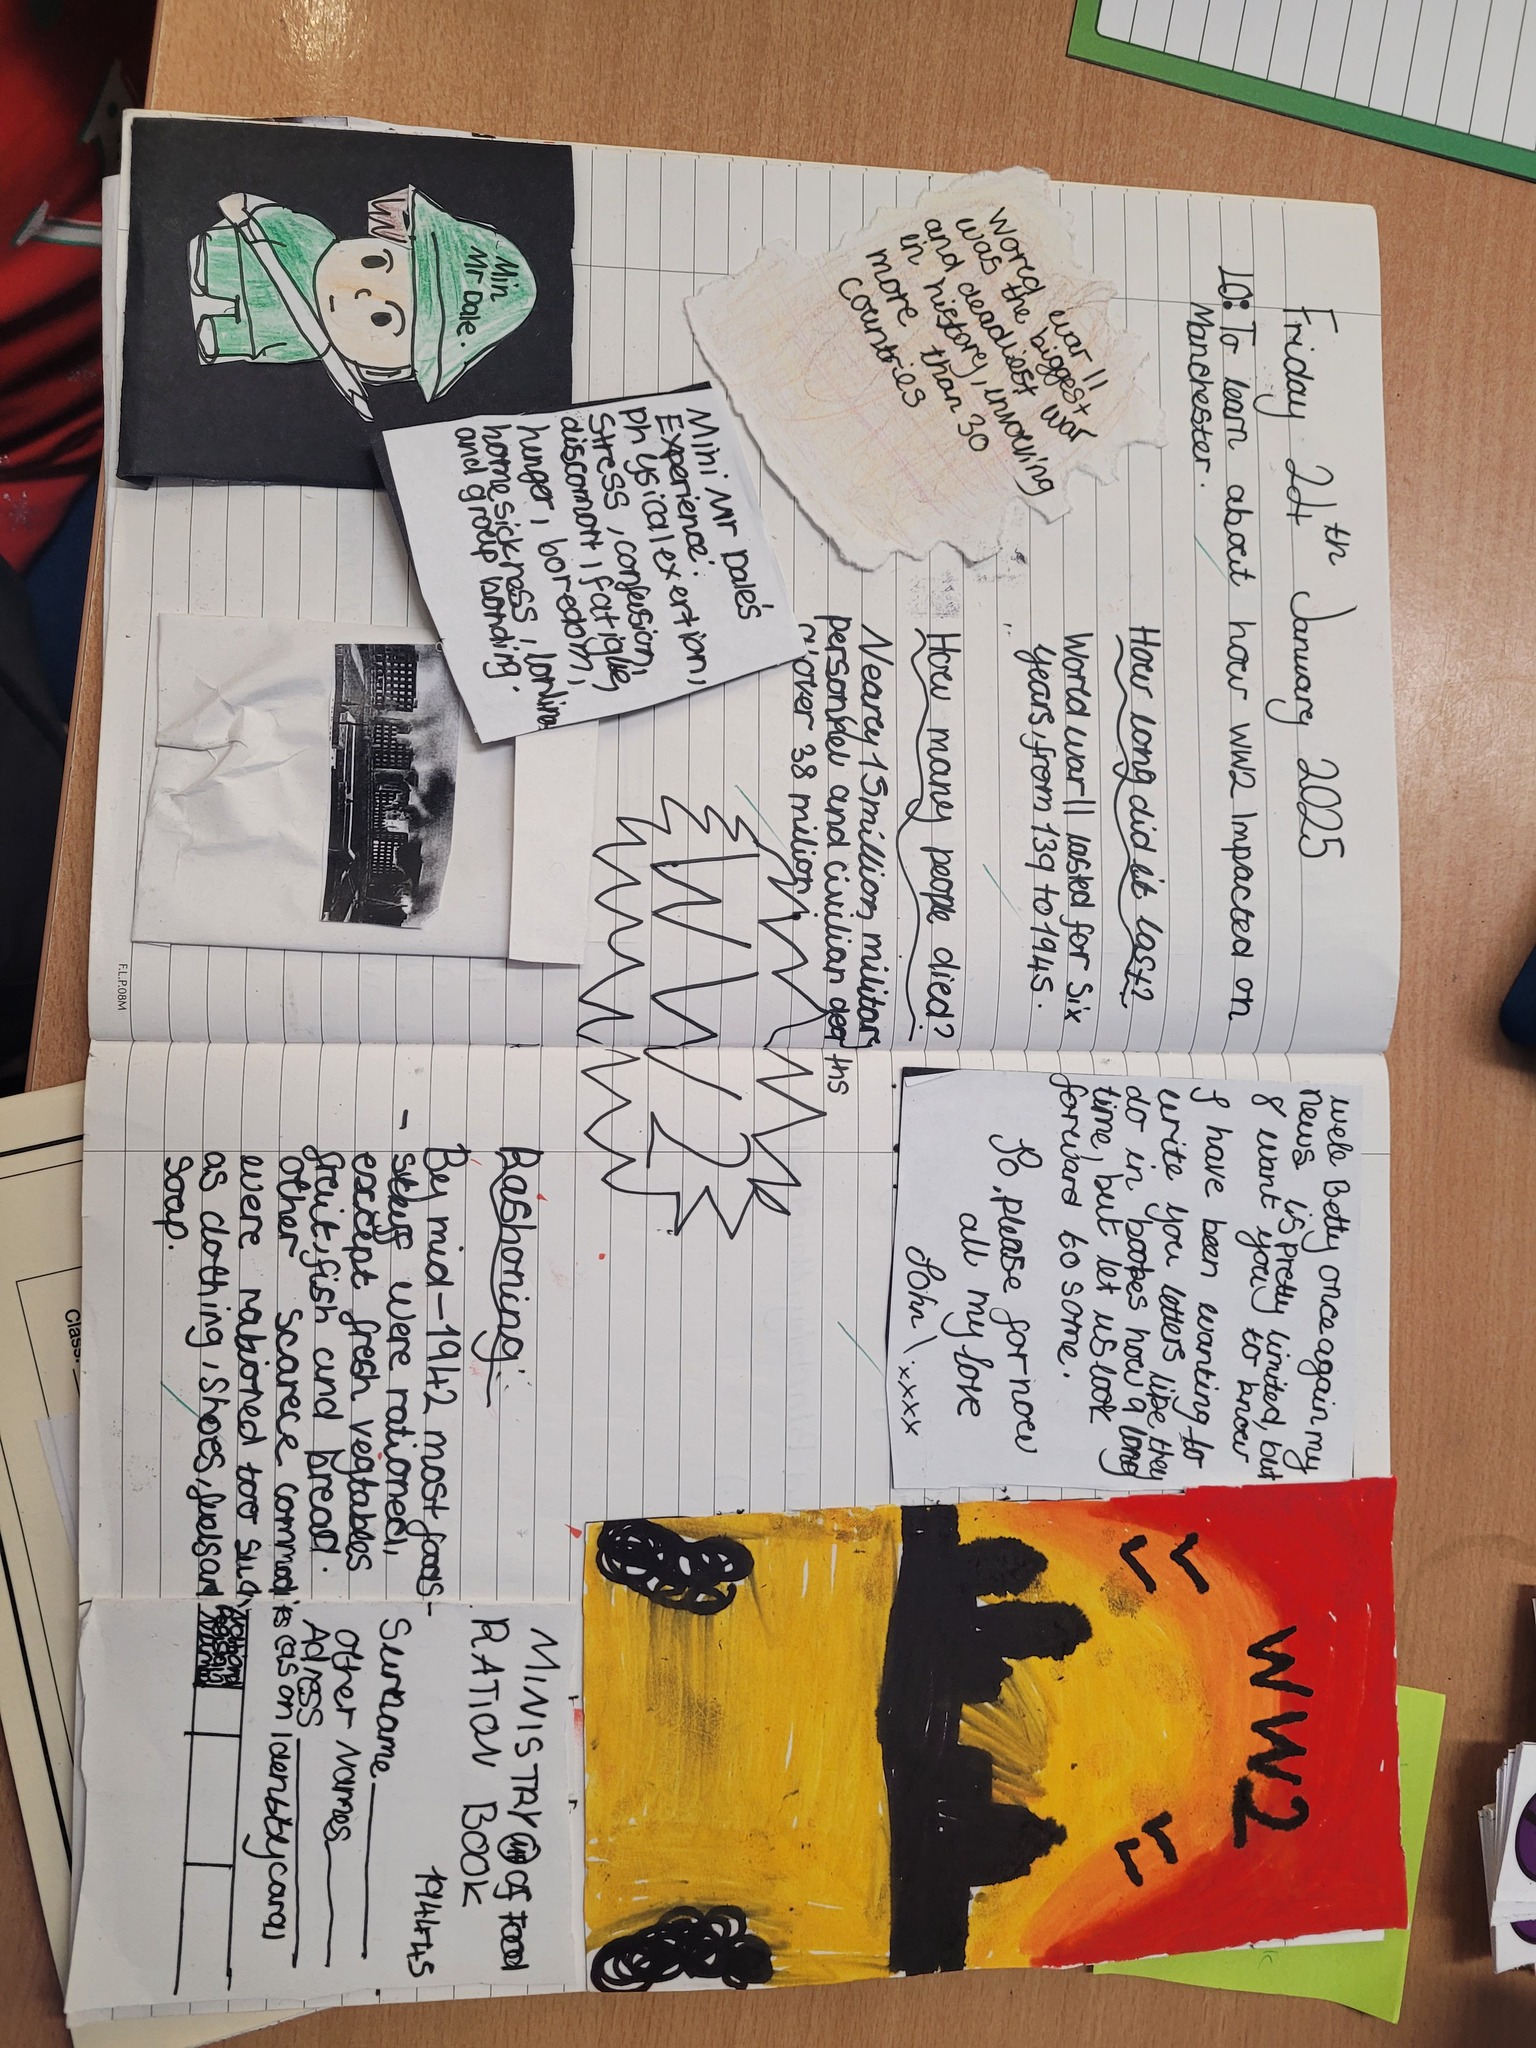 Friday 24th January 2025
LO: To learn about how WW2 Impacted on
Manchester.
World war II
was the biggest
and deadliest war
in history, involving
more than 30
countries
How long did it last?
World war II lasted for six
years, from 139 to 1945.
How many people died?
Nearly 15 million military
personnel and civilian deaths
over 38 million
Mini Mr Dale's
Experience:
physical exertion,
Stress, confusion,
discomort, fatigue,
hunger, boredom,
homesickness, lonlines
and group bonding.
Min
Mr Dale.
WW2
F.L.P.08M
well Betty once again my
news is pretty limited, but
I want you to know
I have been wanting to
write you letters like they
do in books how a long
time, but let us look
forward to some.
So, please for now
all my love
John \:xxxx
WW2
Rashoning:
By mid-1942 most foods-
- stuff were rationed,
except fresh vegtables
fruit, fish and bread.
other scarece commodities
were nationed too such
as clothing, Shoes, fuels and
Soap.
MINISTRY of food
RATION BOOK
1944-45
Surname
other Names
Adress
(as on Identity card)
Class: